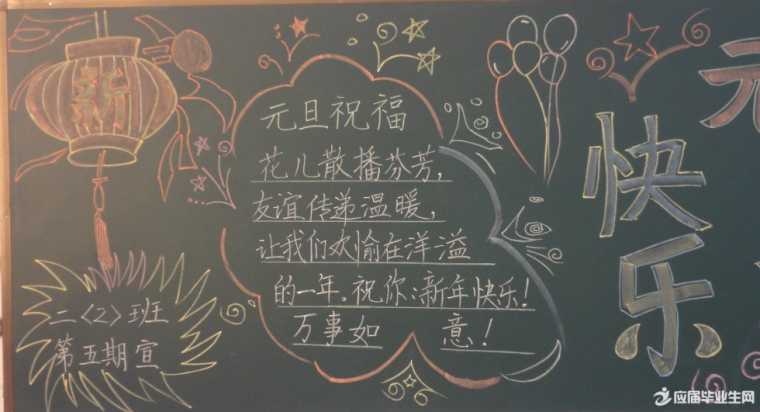 新
元旦祝福
花儿散播芬芳,
友谊传递温暖,
让我们欢愉在洋溢
的一年。祝你:新年快乐!
万事如 意!
二〈2〉班
第五期宣
元
快
乐
应届毕业生网